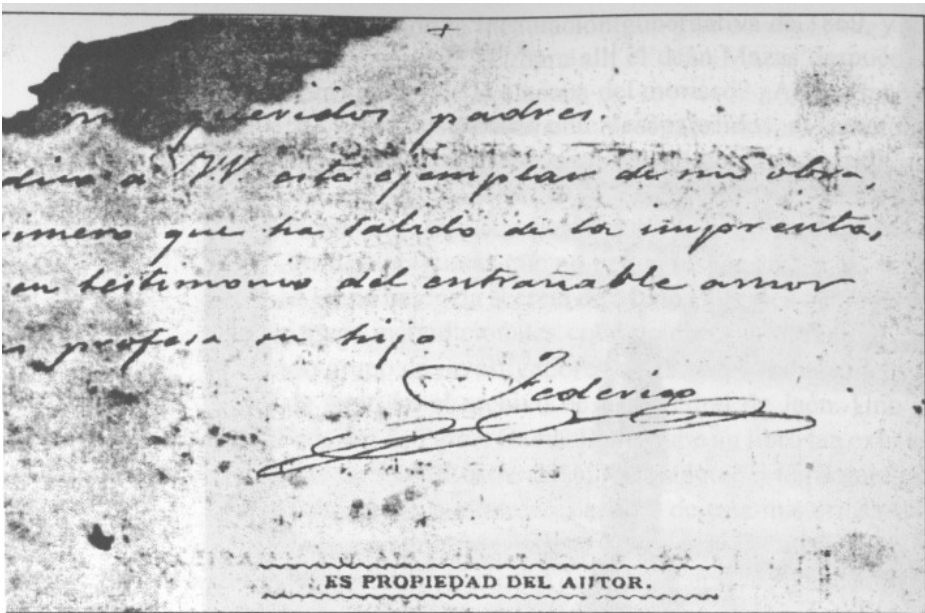 mis queridos padres.
dico a VV este ejemplar de mi obra,
rimero que ha salido de la imprenta,
en testimonio del entrañable amor
profesa su hijo
Federico
ES PROPIEDAD DEL AUTOR.